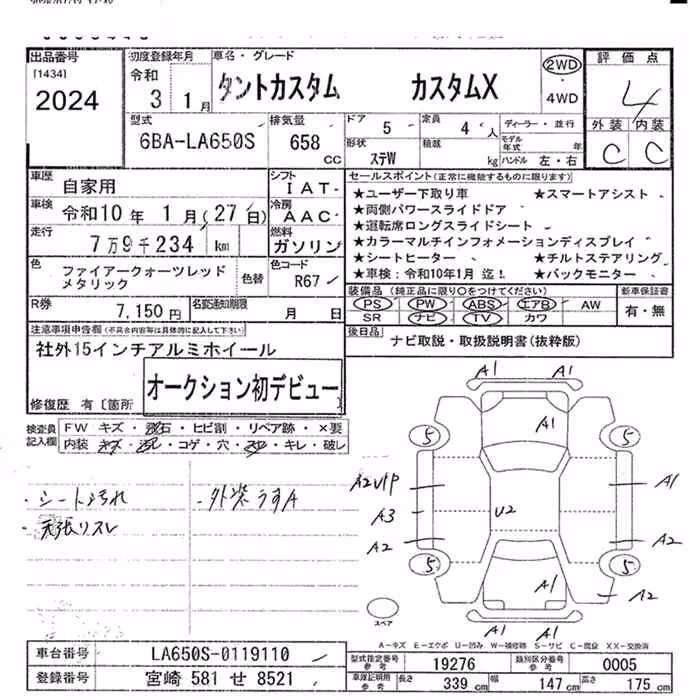 出品番号 初度登録年月 車名・グレード 評価点
[1434] 令和 タントカスタム カスタムX 2WD ・ 4WD 4
2024 3 1月
外装 内装
型式 排気量 ドア 5 定員 4人 ディーラー・並行
6BA-LA650S 658 cc 形状 ステW 積載 kg モデル年式 年 ハンドル 左・右 C C
車歴 自家用 シフト IAT
車検 令和10年 1月(27日) 冷房 AAC
走行 7万9千234 km 燃料 ガソリン
色 ファイアークォーツレッド メタリック 色替 色コード R67
R券 7,150円 名変通知期限 月 日
セールスポイント(正常に機能するものに限ります)
★ユーザー下取り車 ★スマートアシスト
★両側パワースライドドア
★運転席ロングスライドシート
★カラーマルチインフォメーションディスプレイ
★シートヒーター ★チルトステアリング
★車検:令和10年1月 迄! ★バックモニター
装備品(純正品に限り○をつけてください) 新車保証書
PS PW ABS エアB AW 有・無
SR ナビ TV カワ
後日品 ナビ取説・取扱説明書(抜粋版)
注意事項申告欄(不具合内容等は具体的に記入して下さい)
社外15インチアルミホイール
オークション初デビュー
修復歴 有〔箇所
検査員記入欄 FW キズ・飛石・ヒビ割・リペア跡・×要
内装 キズ・汚れ・コゲ・穴・スレ・キレ・破レ
・シート汚れ ・外装うすA
・天張リスレ
A1 A1
A1
5 5
A2 A1
A3 U2
A2 A2
5 5
A1 A2
A1 A1
スペア
A-キズ E-エクボ U-凹み W-補修跡 S-サビ C-腐食 XX-交換済
車台番号 LA650S-0119110 型式指定番号 参考 19276 類別区分番号 参考 0005
登録番号 宮崎 581 せ 8521 車庫証明用 参考 長さ 339 cm 幅 147 cm 高さ 175 cm